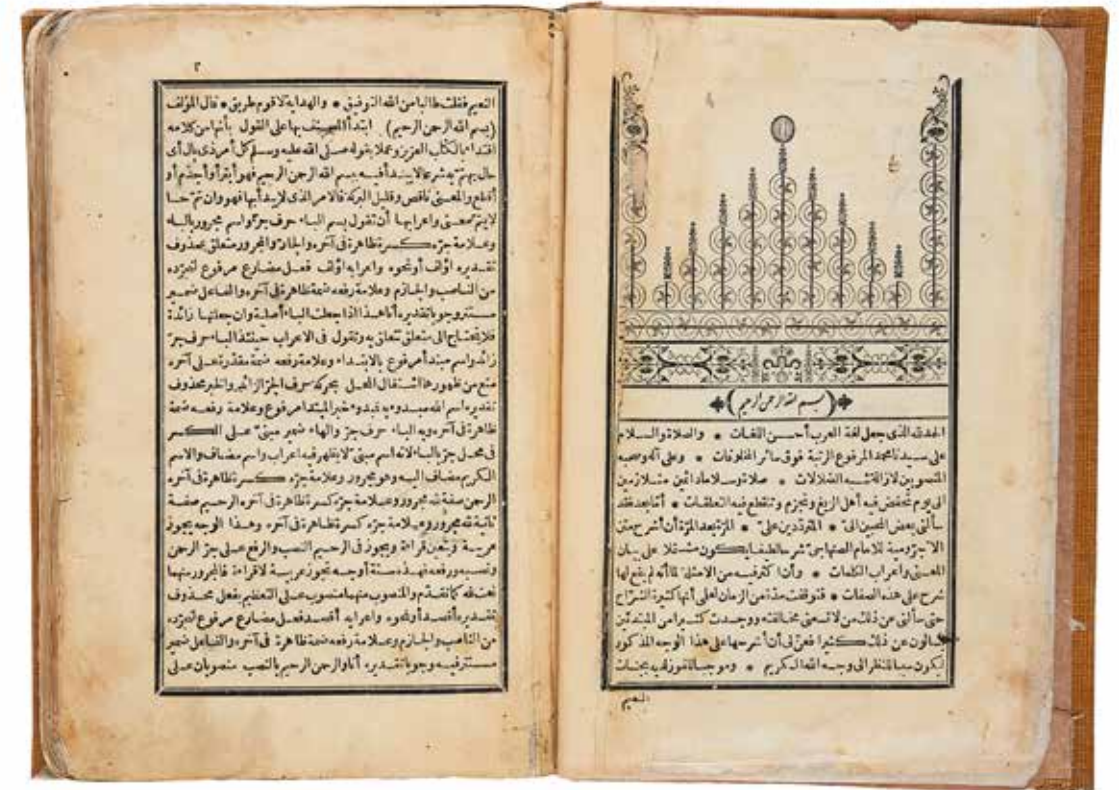 بسم الله الرحمن الرحيم
الحمد لله الذى جعل لغة العرب أحسن اللغات * والصلاة والسلام
على سيدنا محمد المرفوع الرتبة فوق سائر المخلوقات * وعلى آله وصحبه
المنصوبين لازالة شبه الضلالات * صلاة وسلاما دائمين متلازمين
الى يوم تخفض فيه أهل الزيغ وتجزم وتنقطع فيه التعلقات * أما بعد فقد
سألنى بعض المحبين الىّ * المترددين علىّ * المرة بعد المرة أن أشرح متن
الآجرومية للامام الصنهاجى شرحا لطيفا يكون مشتملا على بيان
المعنى واعراب الكلمات * وأن أكثر فيه من الامثلة لما أنه لم يقع لها
شرح على هذه الصفات * فتوقفت مدة من الزمان لعلمى أنها كثيرة الشراح
حتى سألنى عن ذلك من لا تسعنى مخالفته ووجدت كثيرا من المبتدئين
يسألون عن ذلك كثيرا فعنّ لى أن أشرحها على هذا الوجه المذكور
ليكون سببا للنظر الى وجه الله الكريم * وموجبا للفوز لديه بجنات
النعيم
٢
النعيم فقلت طالبا من الله التوفيق * والهداية لاقوم طريق * قال المؤلف
(بسم الله الرحمن الرحيم) ابتدأ المصنف بها على القول بأنها من كلامه
اقتداء بالكتاب العزيز وعملا بقوله صلى الله عليه وسلم كل أمر ذى بال أى
حال يهتم به شرعا لا يبدأ فيه ببسم الله الرحمن الرحيم فهو أبتر أو أجذم أو
أقطع والمعنى ناقص وقليل البركة فالامر الذى لا يبدأ بها فهو وان تم حسا
لا يتم معنى واعرابها أن تقول بسم الباء حرف جر واسم مجرور بالباء
وعلامة جره كسرة ظاهرة فى آخره والجار والمجرور متعلق بمحذوف
تقديره اؤلف أو نحوه واعرابه اؤلف فعل مضارع مرفوع لتجرده
من الناصب والجازم وعلامة رفعه ضمة ظاهرة فى آخره والفاعل ضمير
مستتر وجوبا تقديره أنا هذا اذا جعلت الباء أصلية وان جعلتها زائدة
فلا يحتاج الى متعلق تتعلق به وتقول فى الاعراب حينئذ الباء حرف جر
زائد واسم مبتدأ مرفوع بالابتداء وعلامة رفعه ضمة مقدرة على آخره
منع من ظهورها اشتغال المحل بحركة حرف الجر الزائد والخبر محذوف
تقديره اسم الله مبدوء به فمبدوء خبر المبتدا مرفوع وعلامة رفعه ضمة
ظاهرة فى آخره وبه الباء حرف جر والهاء ضمير مبنى على الكسر
فى محل جر بالباء لانه اسم مبنى لا يظهر فيه اعراب واسم مضاف والاسم
الكريم مضاف اليه وهو مجرور وعلامة جره كسرة ظاهرة فى آخره
الرحمن صفة لله مجرور وعلامة جره كسرة ظاهرة فى آخره الرحيم صفة
ثانية لله مجرور وعلامة جره كسرة ظاهرة فى آخره وهذا الوجه يجوز
عربية ويتعين قراءة ويجوز فى الرحيم النصب والرفع على جر الرحمن
ونصبه ورفعه فهذه ستة أوجه تجوز عربية لا قراءة فالمجرور منهما
نعت لله كما تقدم والمنصوب منهما منصوب على التعظيم بفعل محذوف
تقديره أقصد أو نحوه واعرابه أقصد فعل مضارع مرفوع لتجرده
من الناصب والجازم وعلامة رفعه ضمة ظاهرة فى آخره والفاعل ضمير
مستتر فيه وجوبا تقديره أنا والرحمن الرحيم بالنصب منصوبان على